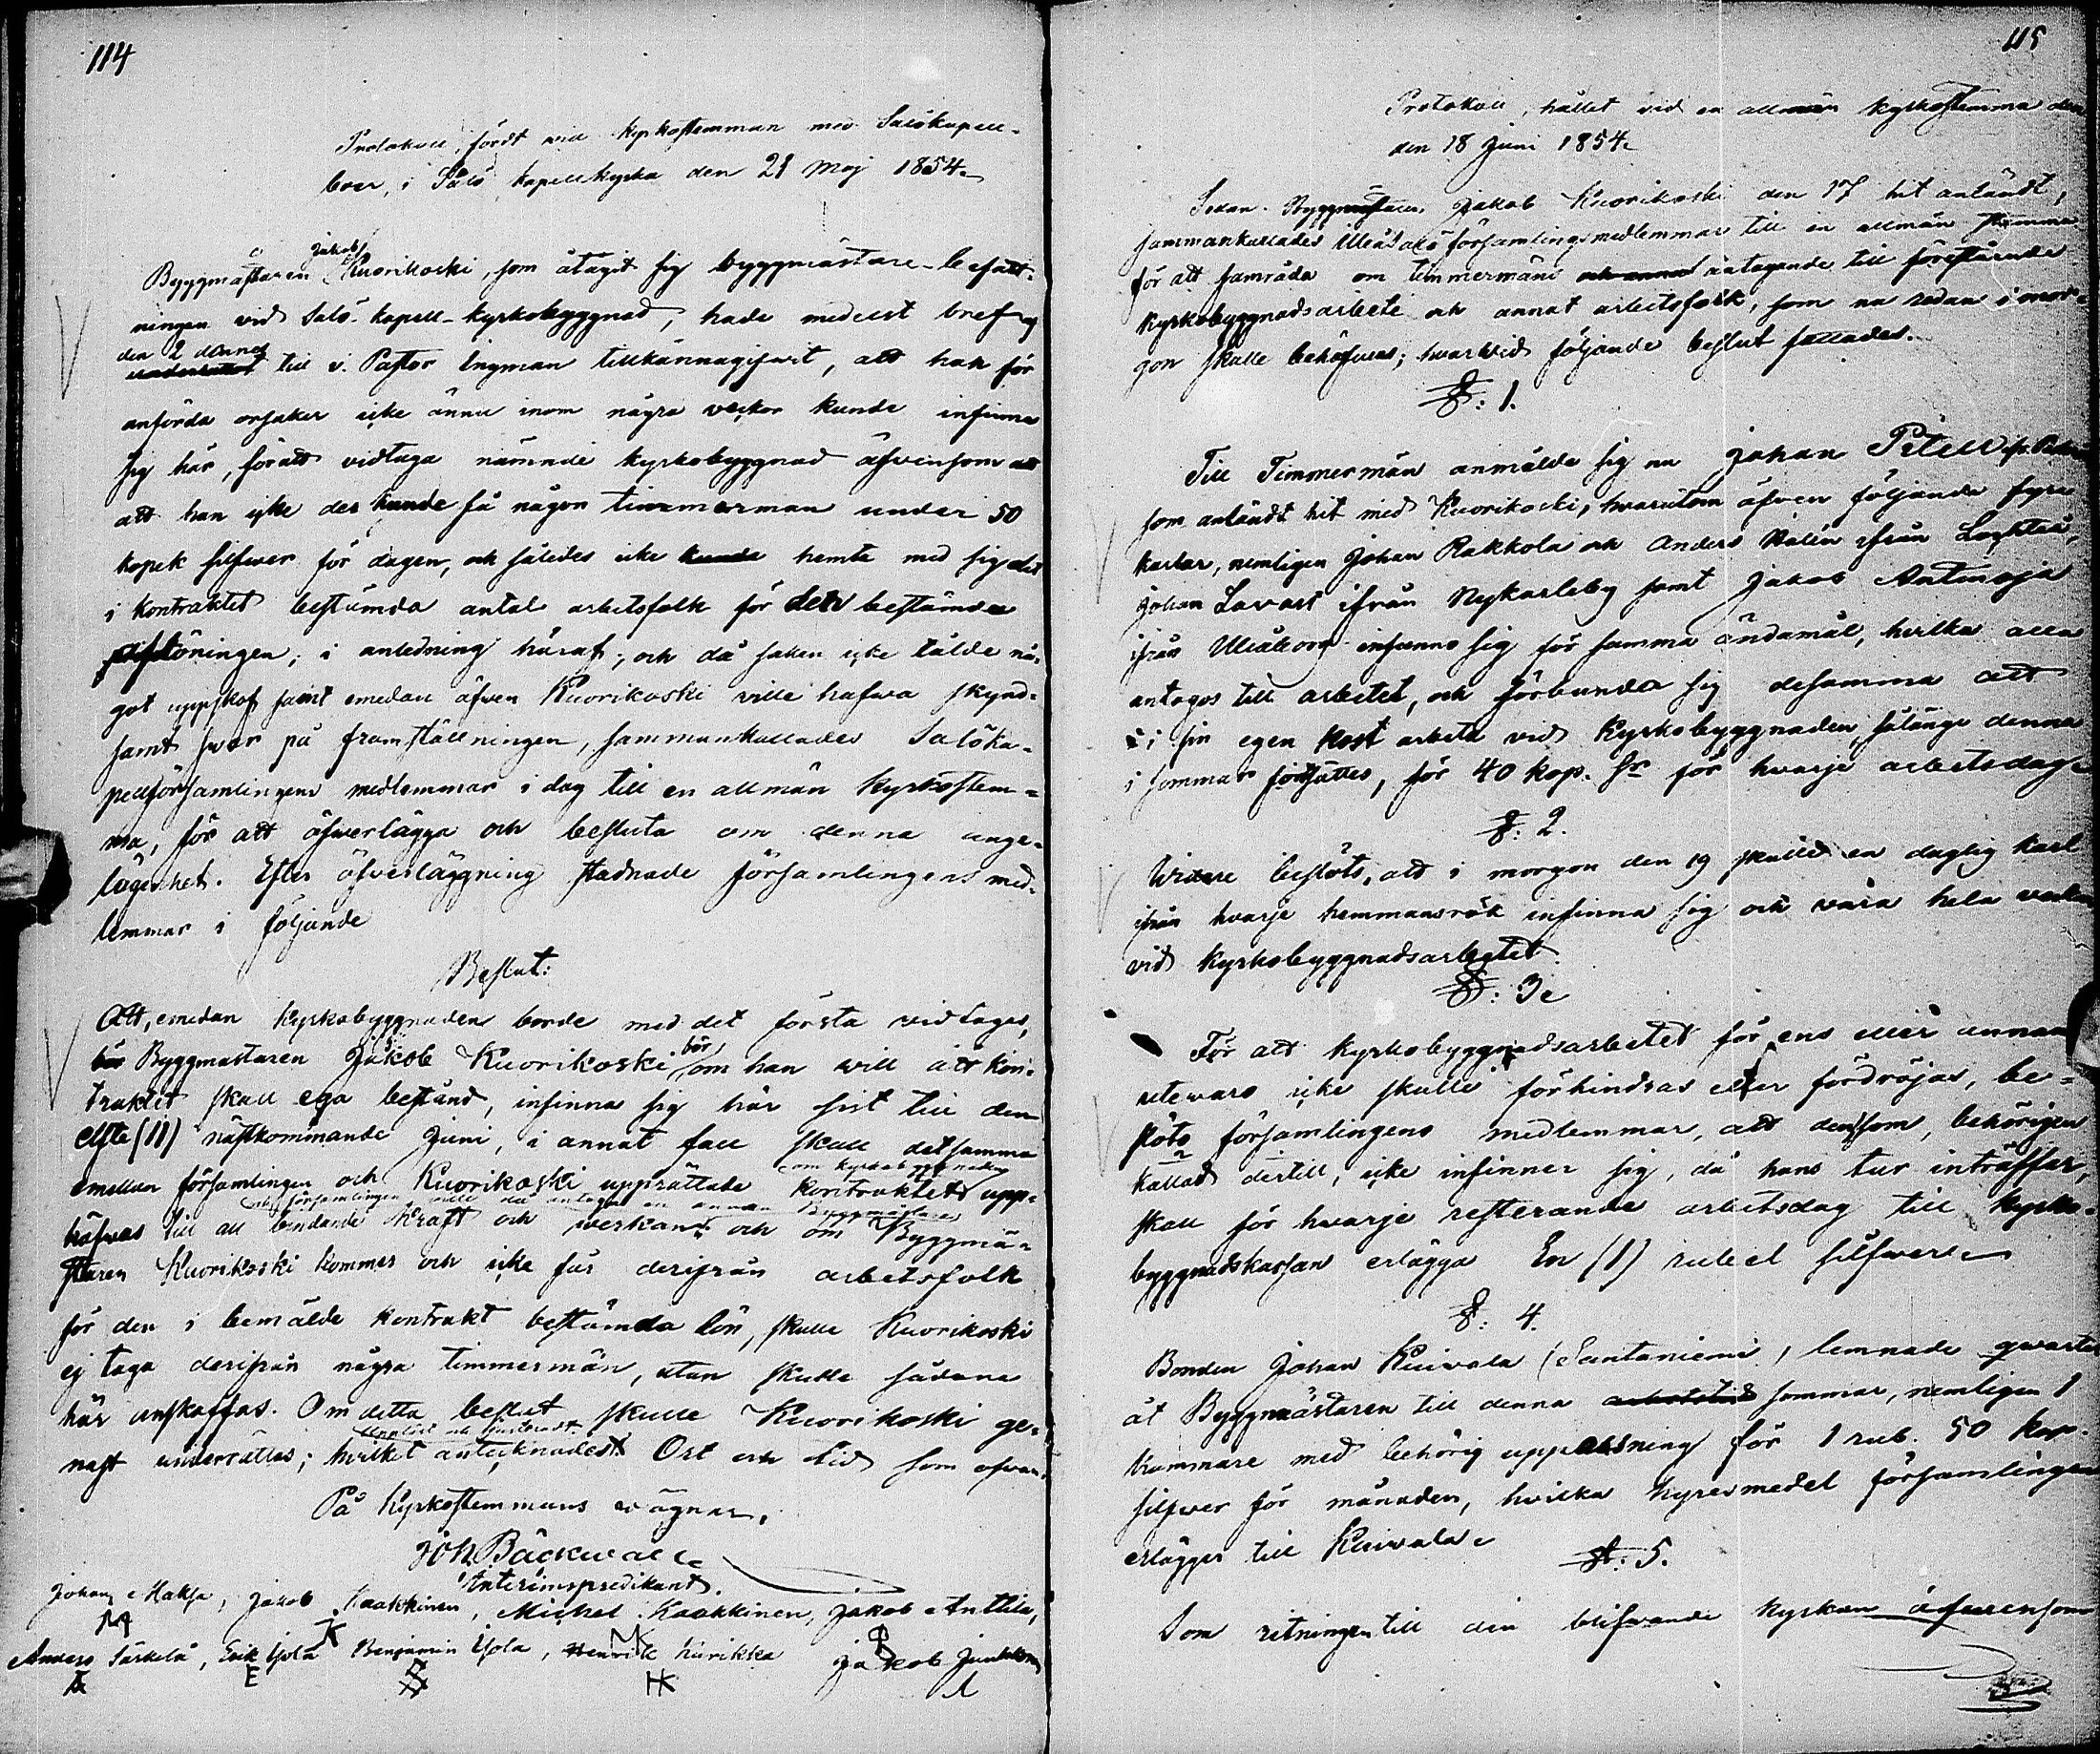 114
Protokoll, fördt vid kyrkostemman med Salo kapell-
boer, i Salo kapellkyrka den 21 Maj 1854.
Byggmästaren Jakob Kuorikoski, som åtagit sig byggmästare-befatt-
ningen vid Salo-kapell-kyrkobyggnad, hade medelst bref af
den 2 dennes till v. Pastor Engman tillkännagifwit, att han för
anförda orsaker icke ännu inom några veckor kunde infinna
sig här, för att vidtaga nämnde kyrkobyggnad äfvensom att
att han icke der kunde få någon timmerman under 50
kopek silfwer för dagen, och således icke kunde hemta med sig det
i kontraktet bestämda antal arbetsfolk för den bestämda
aflöningen; i anledning häraf, och då saken icke tålde nå-
got uppskof samt emedan äfven Kuorikoski ville hafwa skynd-
samt swar på framställningen, sammankallades Saloka-
pellförsamlingens medlemmar i dag till en allmän kyrkostem-
ma, för att öfwerlägga och besluta om denna ange-
lägenhet. Efter öfverläggning stadnade församlingens med-
lemmar i följande
Beslut:
Att, emedan kyrkobyggnaden borde med det första vidtagas,
Byggmästaren Jakob Kuorikoski bör, om han will att kon-
traktet skall ega bestånd, infinna sig här sist till den
elfte (11) nästkommande Juni, i annat fall skall det samma
emellan församlingen och Kuorikoski upprättade kontraktet om kyrkobyggnaden upp-
häfwas till all bindande kraft och werkan och församlingen wille då antaga en annan Byggmästare; och om Byggmä-
staren Kuorikoski kommer och icke får derifrån arbetsfolk
för den i bemälde kontrakt bestämda lön, skulle Kuorikoski
ej taga derifrån några timmermän, utan skulle sådana
här anskaffas. Om detta beslut skulle Kuorikoski ge-
nast underrättas; hvilket antecknades. Uppläst och justeradt. Ort och tid som ofvan.
På Kyrkostemmans wägnar,
Joh. Bäckwall
Interimspredikant.
Johan Maksa, Jakob Kaakkinen, Michel Kaakkinen, Jakob Anttila,
Anders Särkelä, Erik Ypla, Benjamin Ypla, Henrik Hurikka Jakob Junkkonen
115
Protokoll, hållet vid en allmän kyrkostemma den
den 18 Juni 1854.
Sedan Byggmästaren Jakob Kuorikoski den 17 hit anländt,
sammankallades Uleåsalo församlings medlemmar till en allmän stemma
för att samråda om timmermäns och annat antagande till förestående
kyrkobyggnadsarbete och annat arbetsfolk, som nu redan i mor-
gon skulle behöfwas; hvarwid följande beslut fattades.
§: 1.
Till Timmermän anmälde sig nu Johan Pitell
som anländt hit med Kuorikoski, hvarutom äfven följande fyra
karlar, nemligen Johan Rakkola och Anders Walén ifrån Lochteå,
Johan Lavast ifrån Nykarleby samt Jakob Antinoja
ifrån Uleåborg infunno sig för samma ändamål, hvilka alla
antogos till arbetet, och förbundo sig desamma att
i sin egen kost arbeta vid Kyrkobyggnaden, sålänge denna
i sommar fortsättes, för 40 kop. Sr för hvarje arbetsdag.
§: 2.
Widare beslöts, att i morgon den 19 skulle en duglig karl
ifrån hvarje hemmansrök infinna sig och vara hela veckan
vid kyrkobyggnadsarbetet.
§: 3.
För att kyrkobyggnadsarbetet för ens eller annans
utewaro icke skulle förhindras eller fördröjas, be-
slöto församlingens medlemmar, att den som, behörigen
kallad dertill, icke infinner sig, då hans tur inträffar,
skall för hvarje resterande arbetsdag till kyrko-
byggnadskassan erlägga En (1) rubel silfwer.
§: 4.
Bonden Johan Kuivala (Santaniemi), lemnade qwarter
åt Byggmästaren till denna sommar, nemligen 1
kammare med behörig uppassning för 1 rub. 50 kop.
silfwer för månaden, hvilka hyresmedel församlingen
erlägger till Kuivala.
§: 5.
Som ritningen till den blifwande kyrkan äfwensom